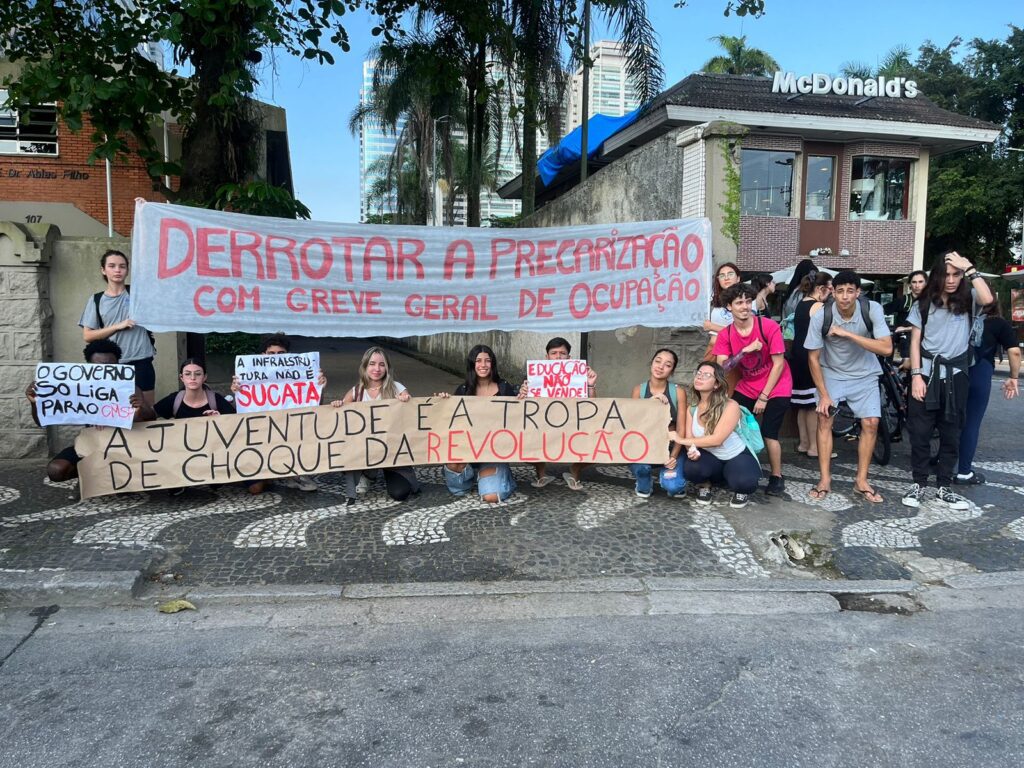 McDonald's
Dr. Abias Filho
107
DERROTAR A PRECARIZAÇÃO
COM GREVE GERAL DE OCUPAÇÃO
O GOVERNO
SO LIGA
PARAO CMSP
A INFRAESTRU
TURA NÃO É
SUCATA
EDUCAÇÃO
NÃO SE
VENDE!
A JUVENTUDE É A TROPA
DE CHOQUE DA REVOLUÇÃO